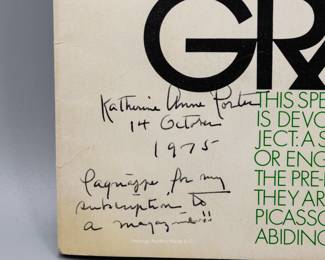 GRA
Katherine Anne Porter
14 October
1975
Lagniappe for my
subscription to
a magazine!!
THIS SPE
IS DEVO
JECT: A S
OR ENG
THE PRE-
THEY AR
PICASSO
ABIDING